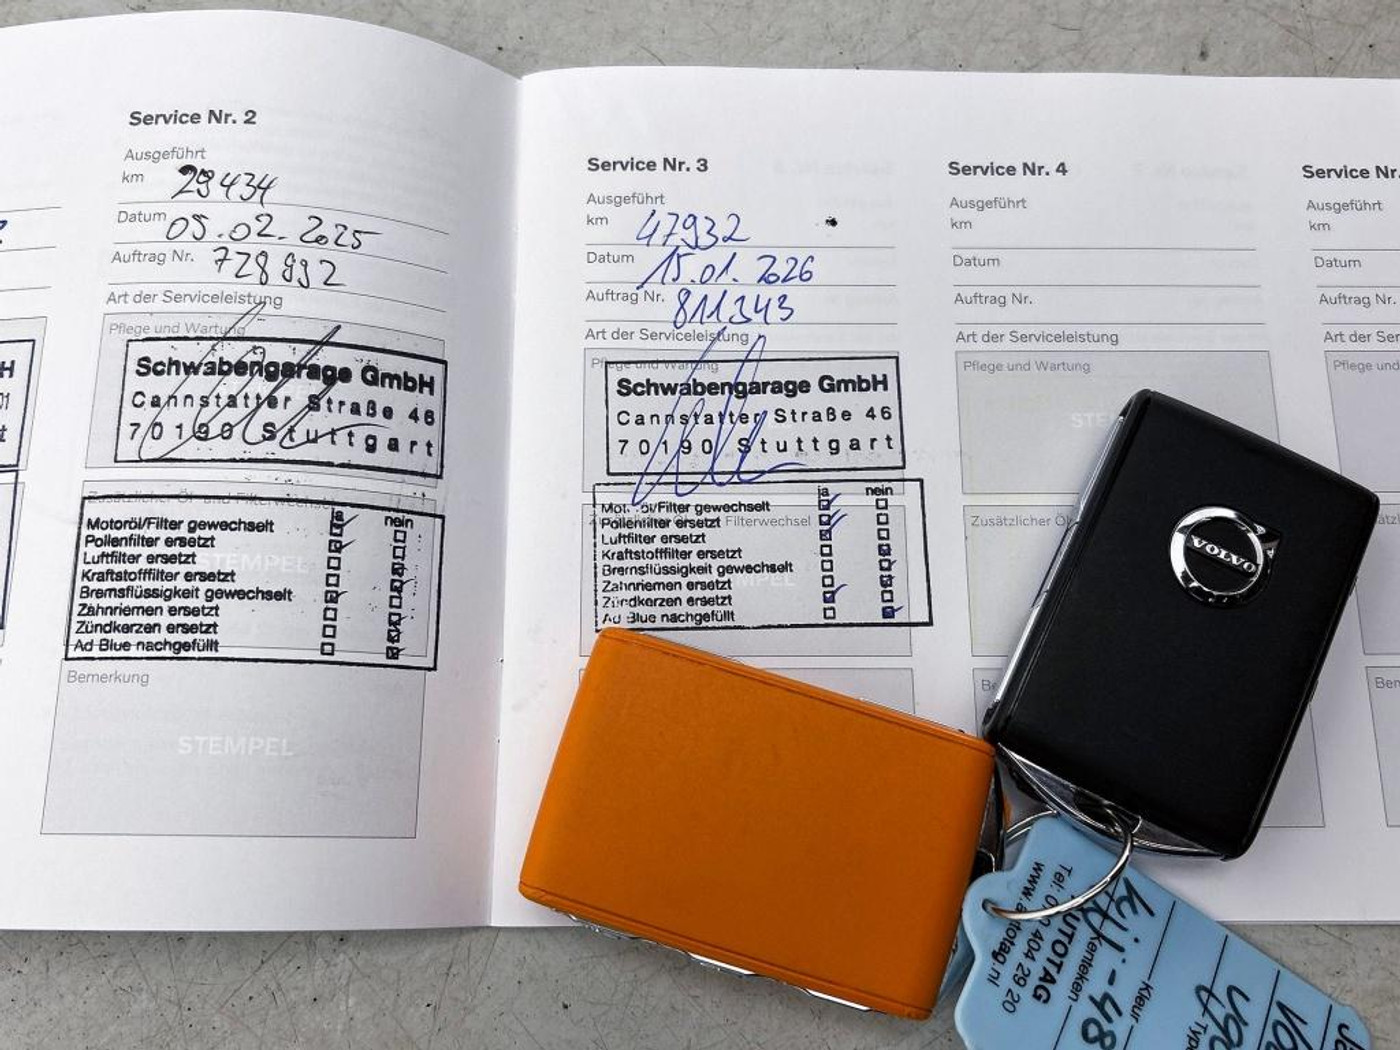 Service Nr. 2
Ausgeführt
km 29434
Datum 05.02.2025
Auftrag Nr. 728992
Art der Serviceleistung
Pflege und Wartung
Schwabengarage GmbH
Cannstatter Straße 46
70190 Stuttgart
Zusätzlicher Öl- und Filterwechsel
ja nein
Motoröl/Filter gewechselt
Pollenfilter ersetzt
Luftfilter ersetzt
Kraftstofffilter ersetzt
Bremsflüssigkeit gewechselt
Zahnriemen ersetzt
Zündkerzen ersetzt
Ad Blue nachgefüllt
STEMPEL
Bemerkung
STEMPEL
Service Nr. 3
Ausgeführt
km 47932
Datum 15.01.2026
Auftrag Nr. 811343
Art der Serviceleistung
Pflege und Wartung
Schwabengarage GmbH
Cannstatter Straße 46
70190 Stuttgart
ja nein
Motoröl/Filter gewechselt
Pollenfilter ersetzt
Filterwechsel
Luftfilter ersetzt
Kraftstofffilter ersetzt
Bremsflüssigkeit gewechselt
Zahnriemen ersetzt
Zündkerzen ersetzt
Ad Blue nachgefüllt
Service Nr. 4
Ausgeführt
km
Datum
Auftrag Nr.
Art der Serviceleistung
Pflege und Wartung
STE
Zusätzlicher Öl
Be
Service Nr.
Ausgeführt
km
Datum
Auftrag Nr.
Art der Ser
Pflege und
Ben
VOLVO
AUTOTAG
www.autotag.nl
Kenteken
Kleur
Type